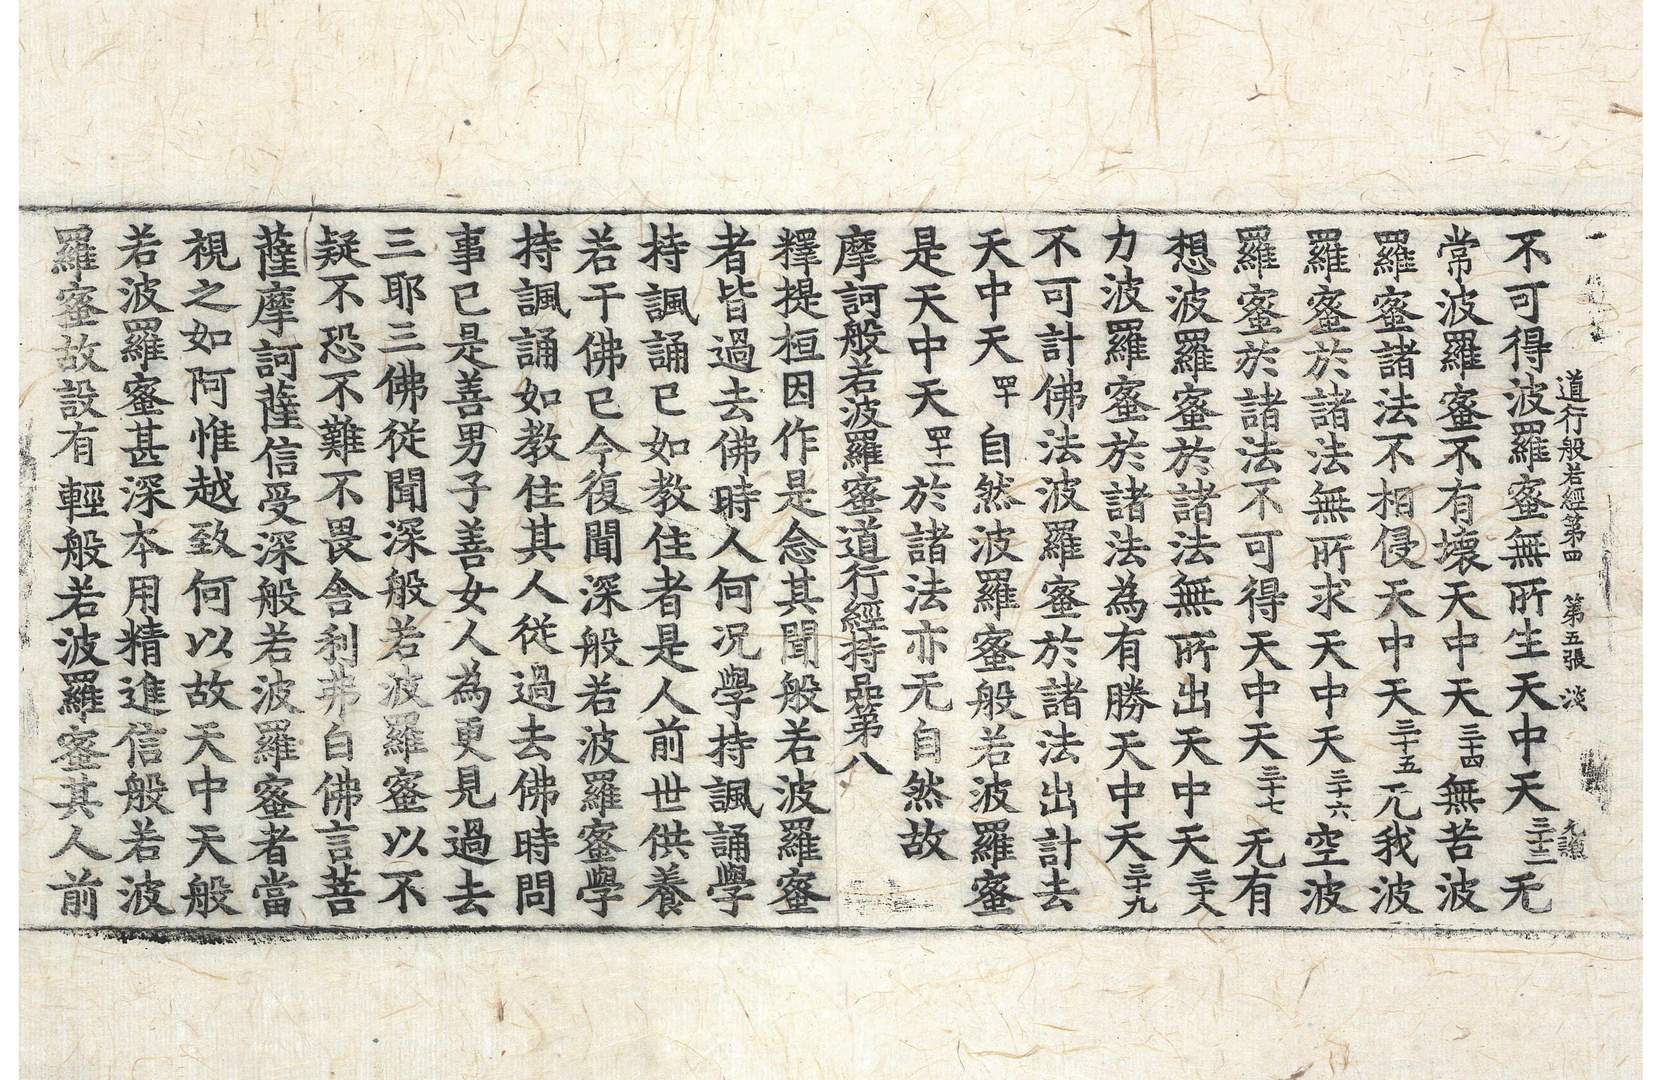 道行般若經第四 第五張 淡
不可得波羅蜜無所生天中天三十三无
常波羅蜜不有壞天中天三十四無苦波
羅蜜諸法不相侵天中天三十五无我波
羅蜜於諸法無所求天中天三十六空波
羅蜜於諸法不可得天中天三十七无有
想波羅蜜於諸法無所出天中天三十八
力波羅蜜於諸法為有勝天中天三十九
不可計佛法波羅蜜於諸法出計去
天中天四十自然波羅蜜般若波羅蜜
是天中天四十一於諸法亦无自然故
摩訶般若波羅蜜道行經持品第八
釋提桓因作是念其聞般若波羅蜜
者皆過去佛時人何況學持諷誦學
持諷誦已如教住者是人前世供養
若干佛已今復聞深般若波羅蜜學
持諷誦如教住其人從過去佛時問
事已是善男子善女人為更見過去
三耶三佛從聞深般若波羅蜜以不
疑不恐不難不畏舍利弗白佛言菩
薩摩訶薩信受深般若波羅蜜者當
視之如阿惟越致何以故天中天般
若波羅蜜甚深本用精進信般若波
羅蜜故設有輕般若波羅蜜其人前